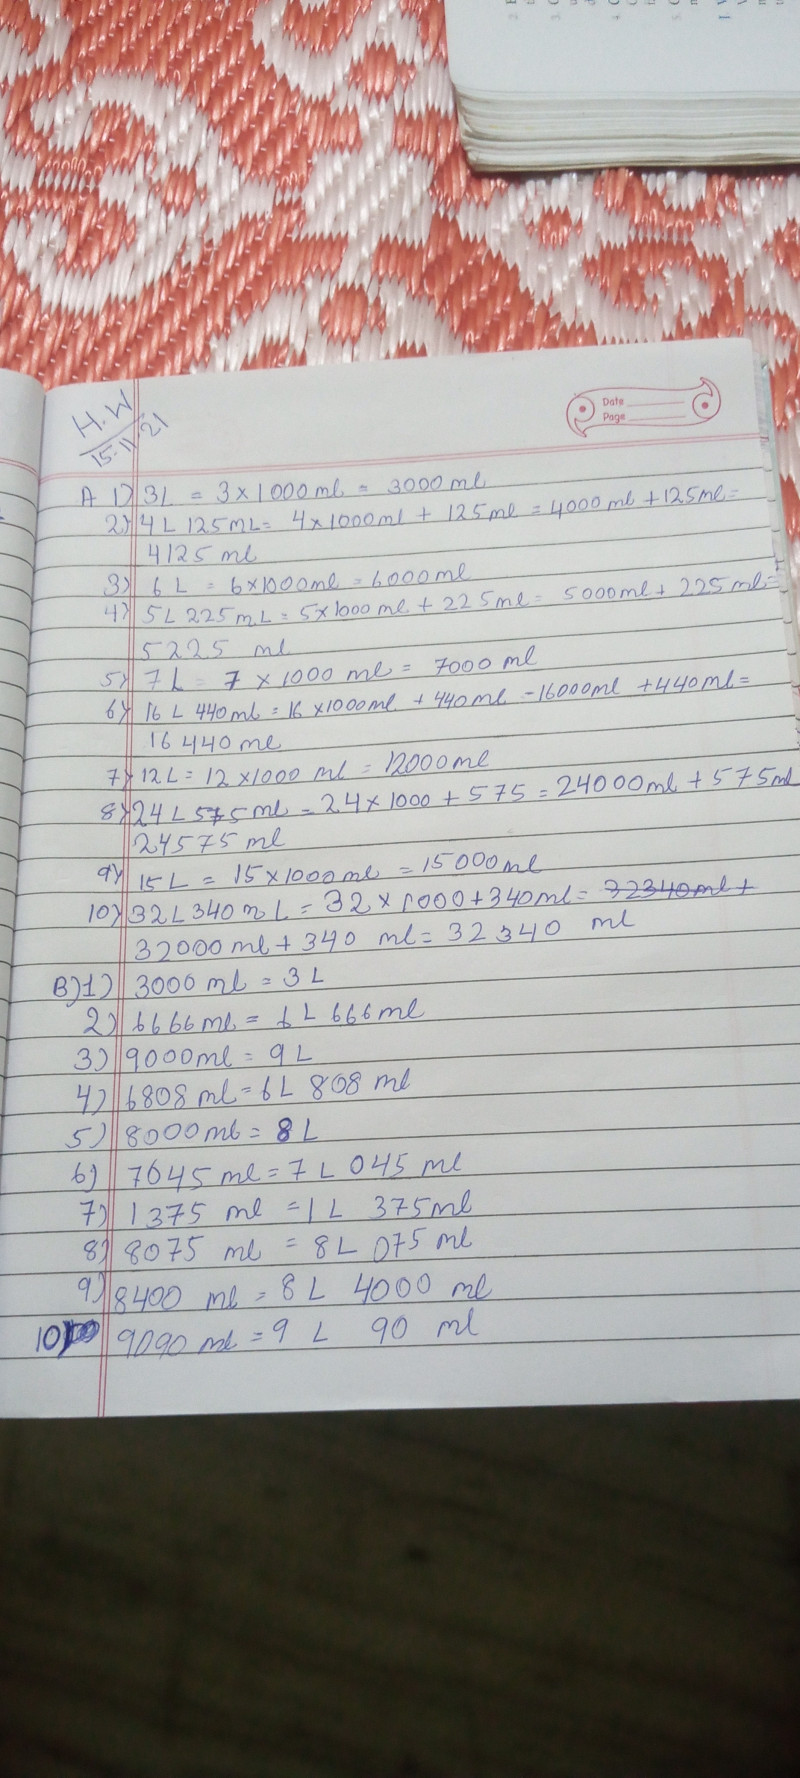 H.W
15-11-21
Date
Page
A 1) 3L = 3×1000ml = 3000ml
2) 4L 125mL = 4×1000ml + 125ml = 4000ml + 125ml =
4125 ml
3) 6L = 6×1000ml = 6000ml
4) 5L 225mL = 5×1000ml + 225ml = 5000ml + 225ml =
5225 ml
5) 7L = 7 × 1000 ml = 7000 ml
6) 16L 440ml = 16×1000ml + 440ml - 16000ml + 440ml =
16440ml
7) 12L = 12×1000 ml = 12000ml
8) 24L 575ml = 24×1000 + 575 = 24000ml + 575ml
24575ml
9) 15L = 15×1000ml = 15000ml
10) 32L 340mL = 32×1000 + 340ml = 32340ml +
32000ml + 340 ml = 32340 ml
B)1) 3000ml = 3L
2) 6666ml = 6L 666ml
3) 9000ml = 9L
4) 6808ml = 6L 808ml
5) 8000ml = 8L
6) 7045ml = 7L 045 ml
7) 1375 ml = 1L 375ml
8) 8075 ml = 8L 075ml
9) 8400 ml = 8L 4000 ml
10) 9090ml = 9 L 90 ml